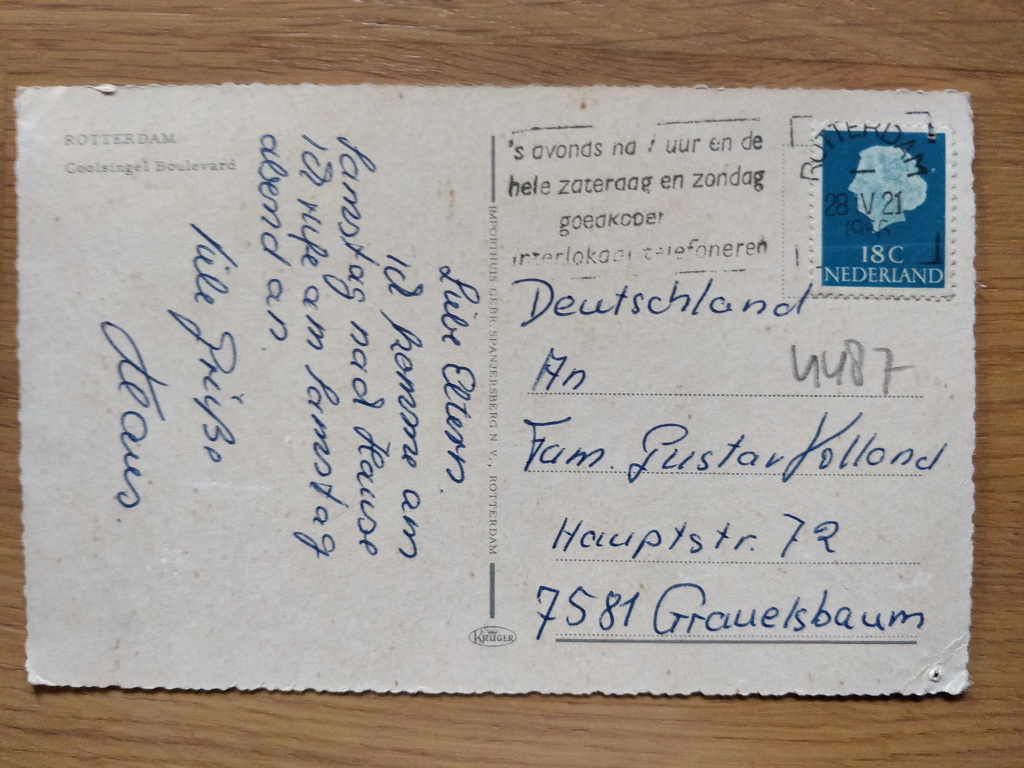 ROTTERDAM
Coolsingel Boulevard
Liebe Eltern.
Ich komme am
Samstag nach Hause
Ich rufe am Samstag
abend an.
Viele Grüße
Klaus.
IMPORTHUIS GEBR. SPANJERSBERG N.V., ROTTERDAM
KRÜGER
's avonds na 7 uur en de
hele zaterdag en zondag
goedkoper
interlokaal telefoneren
ROTTERDAM
28 V 21
1966
18 C
NEDERLAND
Deutschland
4487
An
Fam. Gustav Volland
Hauptstr. 72
7581 Grauelsbaum